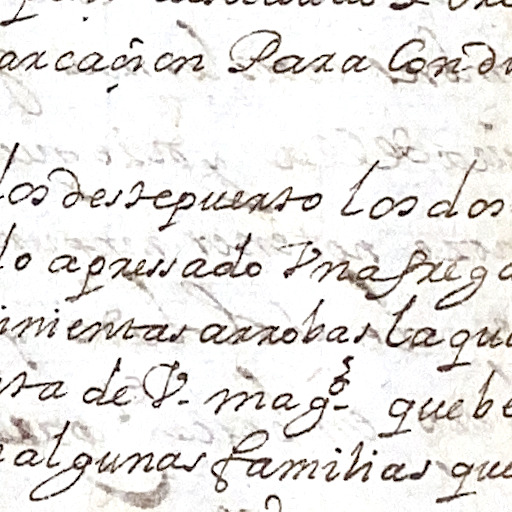 arcaçion Para Con du
los deste puerto los dos
lo apressado Vna frega
inientas arrobas la que
sta de V. magd. que be
algunas familias que